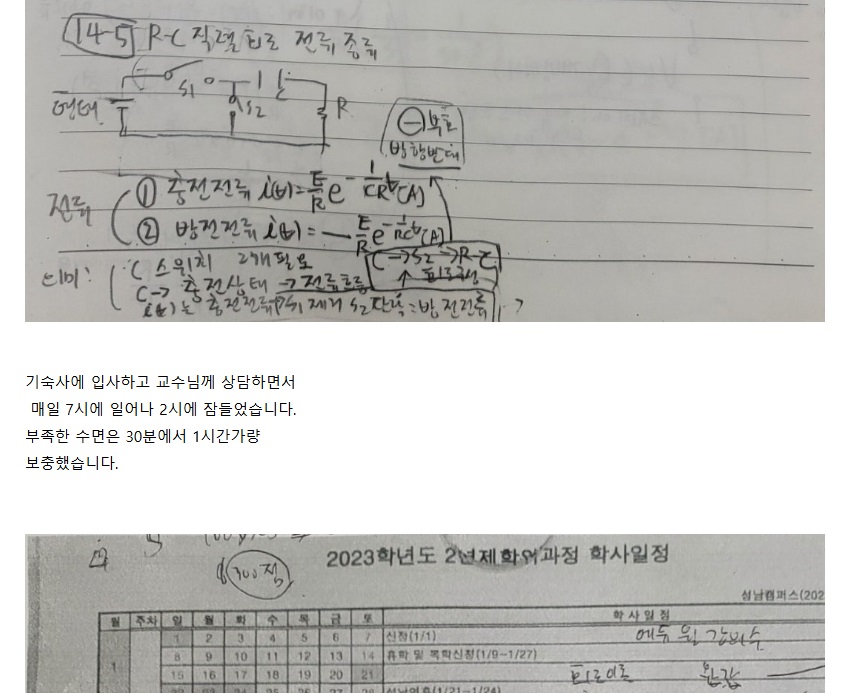 14-5 R-C 직렬회로 전류 종류
형태
S1
S2
R
⊖ 부호
방향반대
전류
① 충전전류 i(t)=E/R e^-1/CR t (A)
② 방전전류 i(t)=-E/R e^-1/RC t (A)
의미:
C 스위치 2개 필요
C→S2→R-C
C→ 충전상태 → 전류흐름
↑ 회로구성
i(t)는 충전전류 S1 제거 S2 단락=방전전류
기숙사에 입사하고 교수님께 상담하면서
매일 7시에 일어나 2시에 잠들었습니다.
부족한 수면은 30분에서 1시간가량
보충했습니다.
300점
2023학년도 2년제학위과정 학사일정
성남캠퍼스(202
월 주차 일 월 화 수 목 금 토 학 사 일 정
1 2 3 4 5 6 7 신정(1/1)
8 9 10 11 12 13 14 휴학 및 복학신청(1/9~1/27)
1
15 16 17 18 19 20 21 회로이론
설날연휴(1/21~1/24)